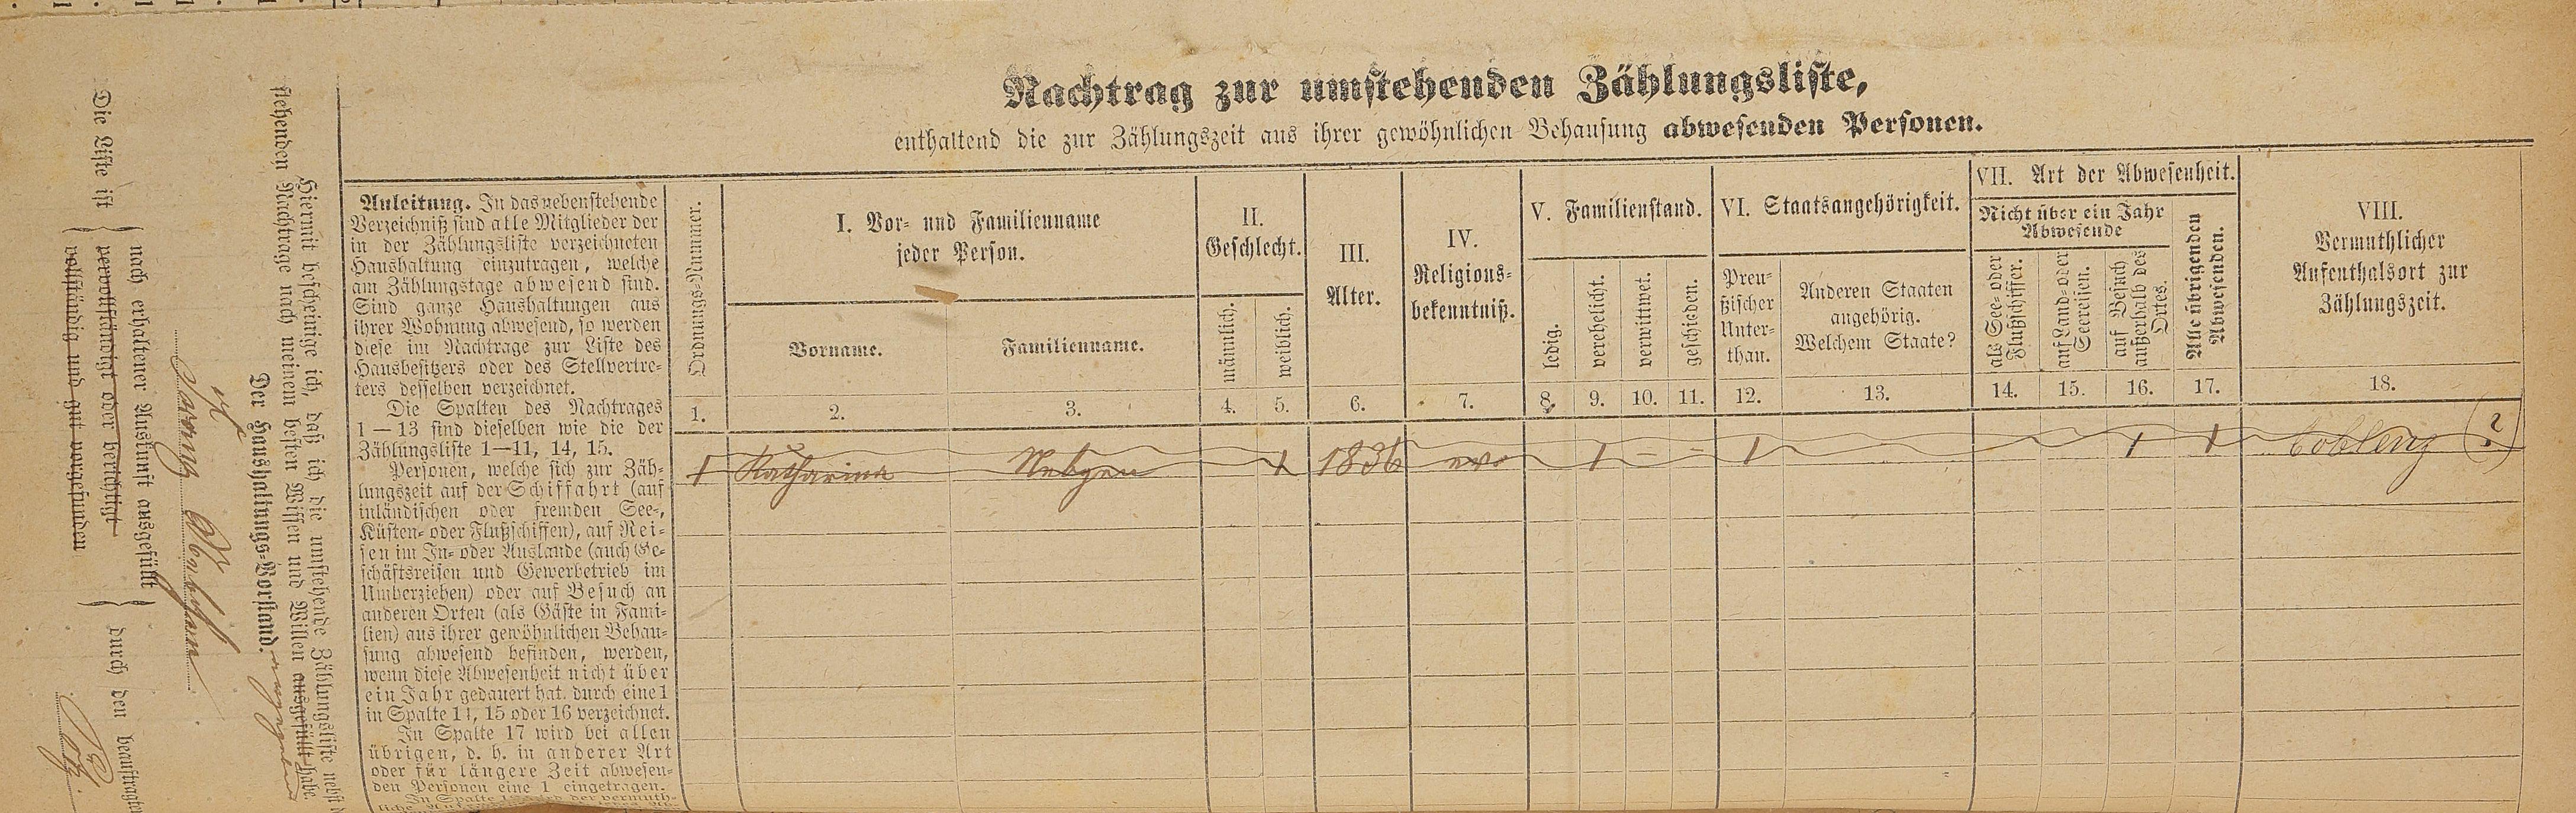 Nachtrag zur umstehenden Zählungsliste,
enthaltend die zur Zählungszeit aus ihrer gewöhnlichen Behausung abwesenden Personen.
Anleitung. In das nebenstehende
Verzeichniß sind alle Mitglieder der
in der Zählungsliste verzeichneten
Haushaltung einzutragen, welche
am Zählungstage abwesend sind.
Sind ganze Haushaltungen aus
ihrer Wohnung abwesend, so werden
diese im Nachtrage zur Liste des
Hausbesitzers oder des Stellvertre-
ters desselben verzeichnet.
Die Spalten des Nachtrages
1—13 sind dieselben wie die der
Zählungsliste 1—11, 14, 15.
Personen, welche sich zur Zäh-
lungszeit auf der Schiffahrt (auf
inländischen oder fremden See-,
Küsten- oder Flußschiffen), auf Rei-
sen im In- oder Auslande (auch Ge-
schäftsreisen und Gewerbetrieb im
Umherziehen) oder auf Besuch an
anderen Orten (als Gäste in Fami-
lien) aus ihrer gewöhnlichen Behau-
sung abwesend befinden, werden,
wenn diese Abwesenheit nicht über
ein Jahr gedauert hat, durch eine 1
in Spalte 14, 15 oder 16 verzeichnet.
In Spalte 17 wird bei allen
übrigen, d. h. in anderer Art
oder für längere Zeit abwesen-
den Personen eine 1 eingetragen.
In Spalte 18 wird der vermuth-
Ordnungs-Nummer.
I. Vor- und Familienname
jeder Person.
Vorname.
Familienname.
II.
Geschlecht.
männlich.
weiblich.
III.
Alter.
IV.
Religions-
bekenntniß.
V. Familienstand.
ledig.
verehelicht.
verwittwet.
geschieden.
VI. Staatsangehörigkeit.
Preu-
ßischer
Unter-
than.
Anderen Staaten
angehörig.
Welchem Staate?
VII. Art der Abwesenheit.
Nicht über ein Jahr
Abwesende
als See- oder
Flußschiffer.
auf Land- oder
Seereisen.
auf Besuch
außerhalb des
Ortes.
Alle übrigenden
Abwesenden.
VIII.
Vermuthlicher
Aufenthalsort zur
Zählungszeit.
1. 2. 3. 4. 5. 6. 7. 8. 9. 10. 11. 12. 13. 14. 15. 16. 17. 18.
1 Katharina Nebgen 1 1836 ev 1 – – 1 1 1 Coblenz (?)
Hiermit bescheinige ich, daß ich die umstehende Zählungsliste nebst
stehenden Nachtrage nach meinem besten Wissen und Willen ausgefüllt habe.
Der Haushaltungs-Vorstand.
Die Liste ist
nach erhaltener Auskunft ausgefüllt
vervollständigt oder berichtigt
vollständig und gut vorgefunden
durch den beauftragten